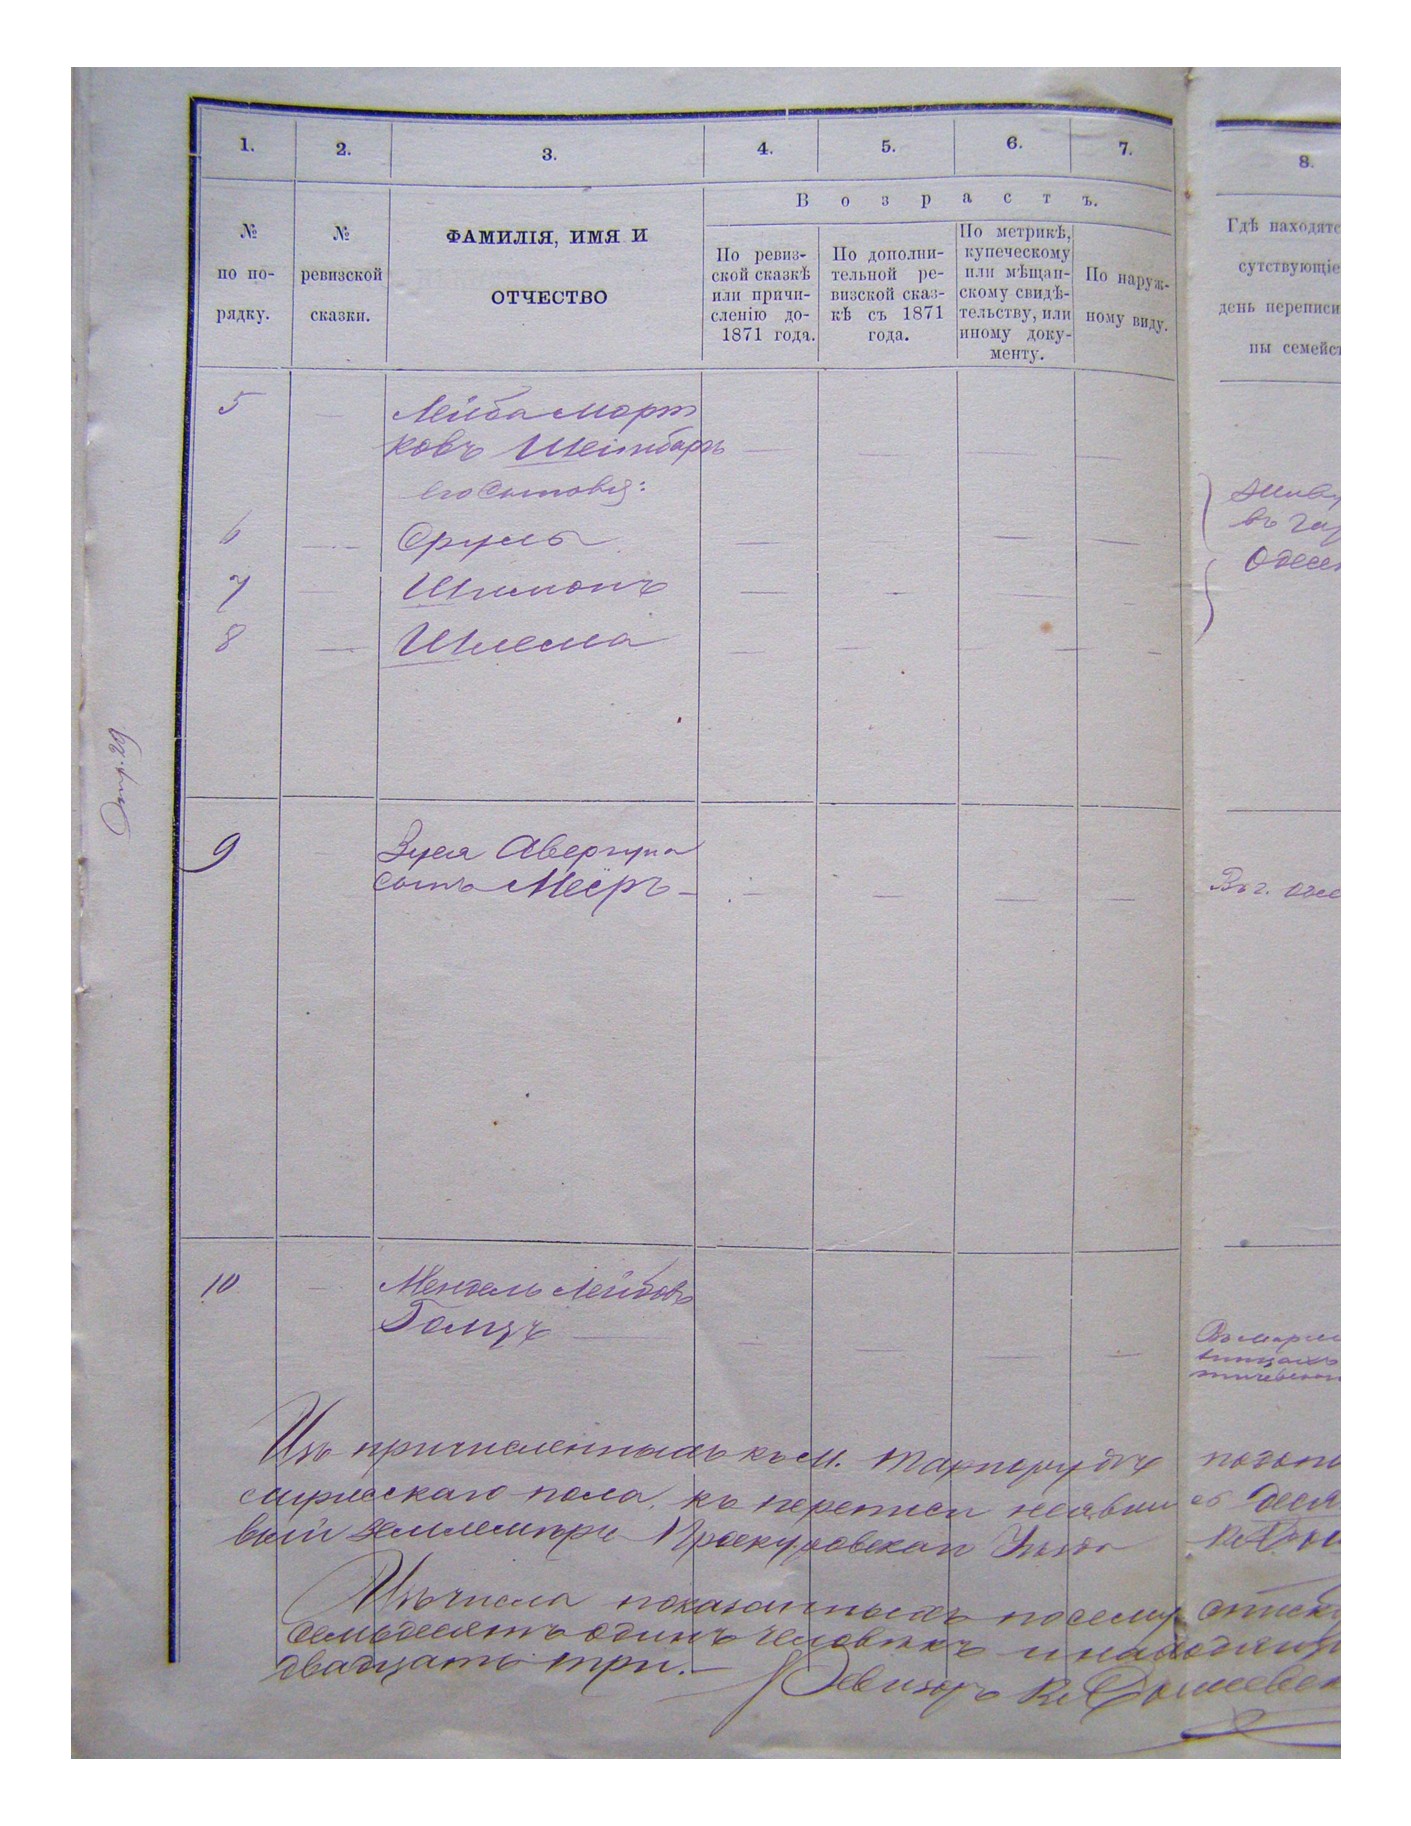 1.
2.
3.
4.
5.
6.
7.
8.
№
по по-
рядку.
№
ревизской
сказки.
ФАМИЛІЯ, ИМЯ И
ОТЧЕСТВО
Возрастъ.
По ревиз-
ской сказкѣ
или причи-
сленію до-
1871 года.
По дополни-
тельной ре-
визской сказ-
кѣ съ 1871
года.
По метрикѣ,
купеческому
или мѣщан-
скому свидѣ-
тельству, или
иному доку-
менту.
По наруж-
ному виду.
Гдѣ находятс
сутствующіе
день переписи
ны семейст
5
ЛейбаМорт
ковъ
его сыновья:
6
Сруль
7
Шимонъ
8
Шлема
въ
Одесс
9
Зуся
сынъ Меєръ
Въ г. Одес
10
Мендель Лейбовъ
Голцъ
Изъ причисленныхъ къ м. Тарнорудѣ
мужескаго пола, къ переписи неявив
вый землемѣръ Проскуровскаго Уѣзда
Изъ числа показанныхъ по сему списку
семьдесятъ одинъ человѣкъ и находящ
двадцать три.
Ревизоръ